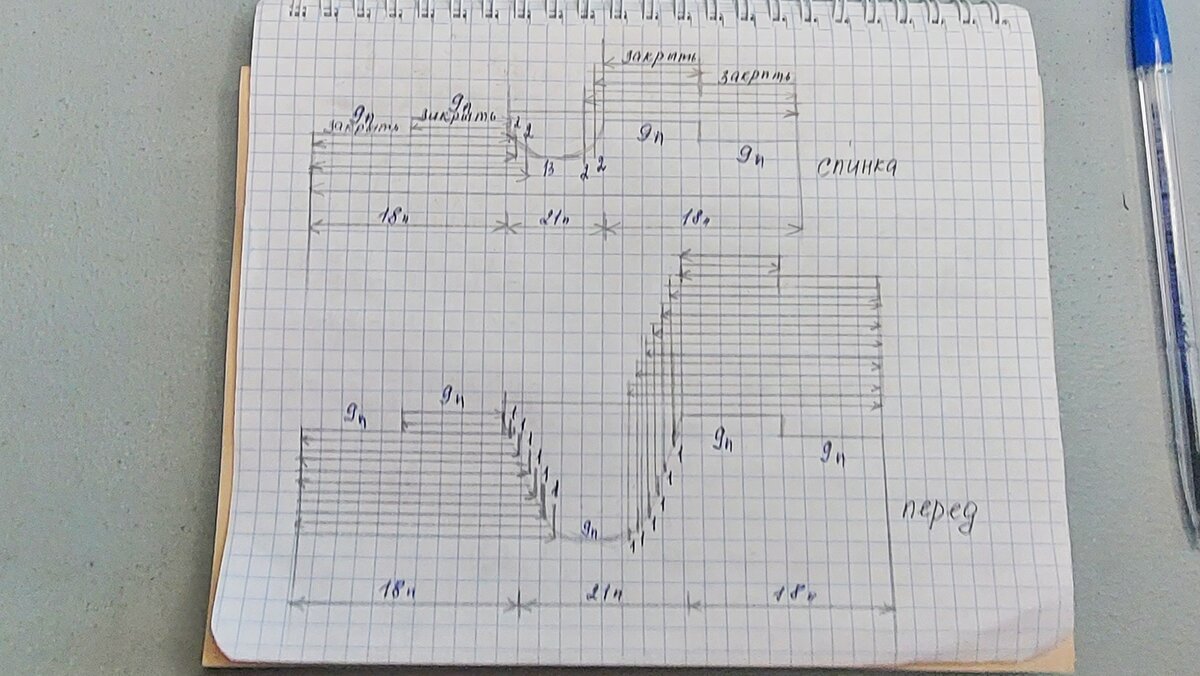 закрыть
закрыть
9п
9п
закрыть
закрыть
2
2
13
2
2
9п
9п
спинка
18п
21п
18п
9п
9п
1
1
1
1
1
1
9п
1
1
1
1
1
1
9п
9п
перед
18п
21п
18п